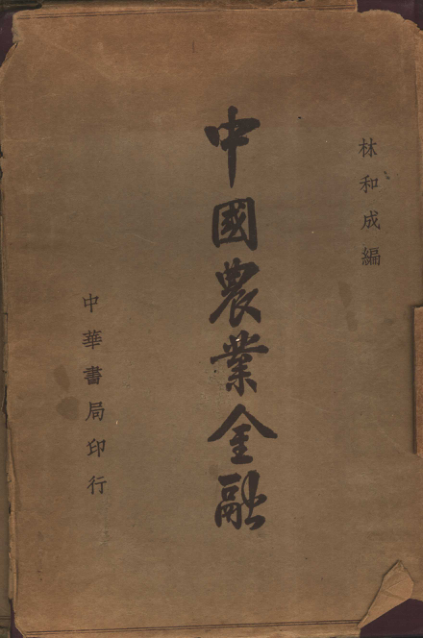 林和成編
中國農業金融
中華書局印行